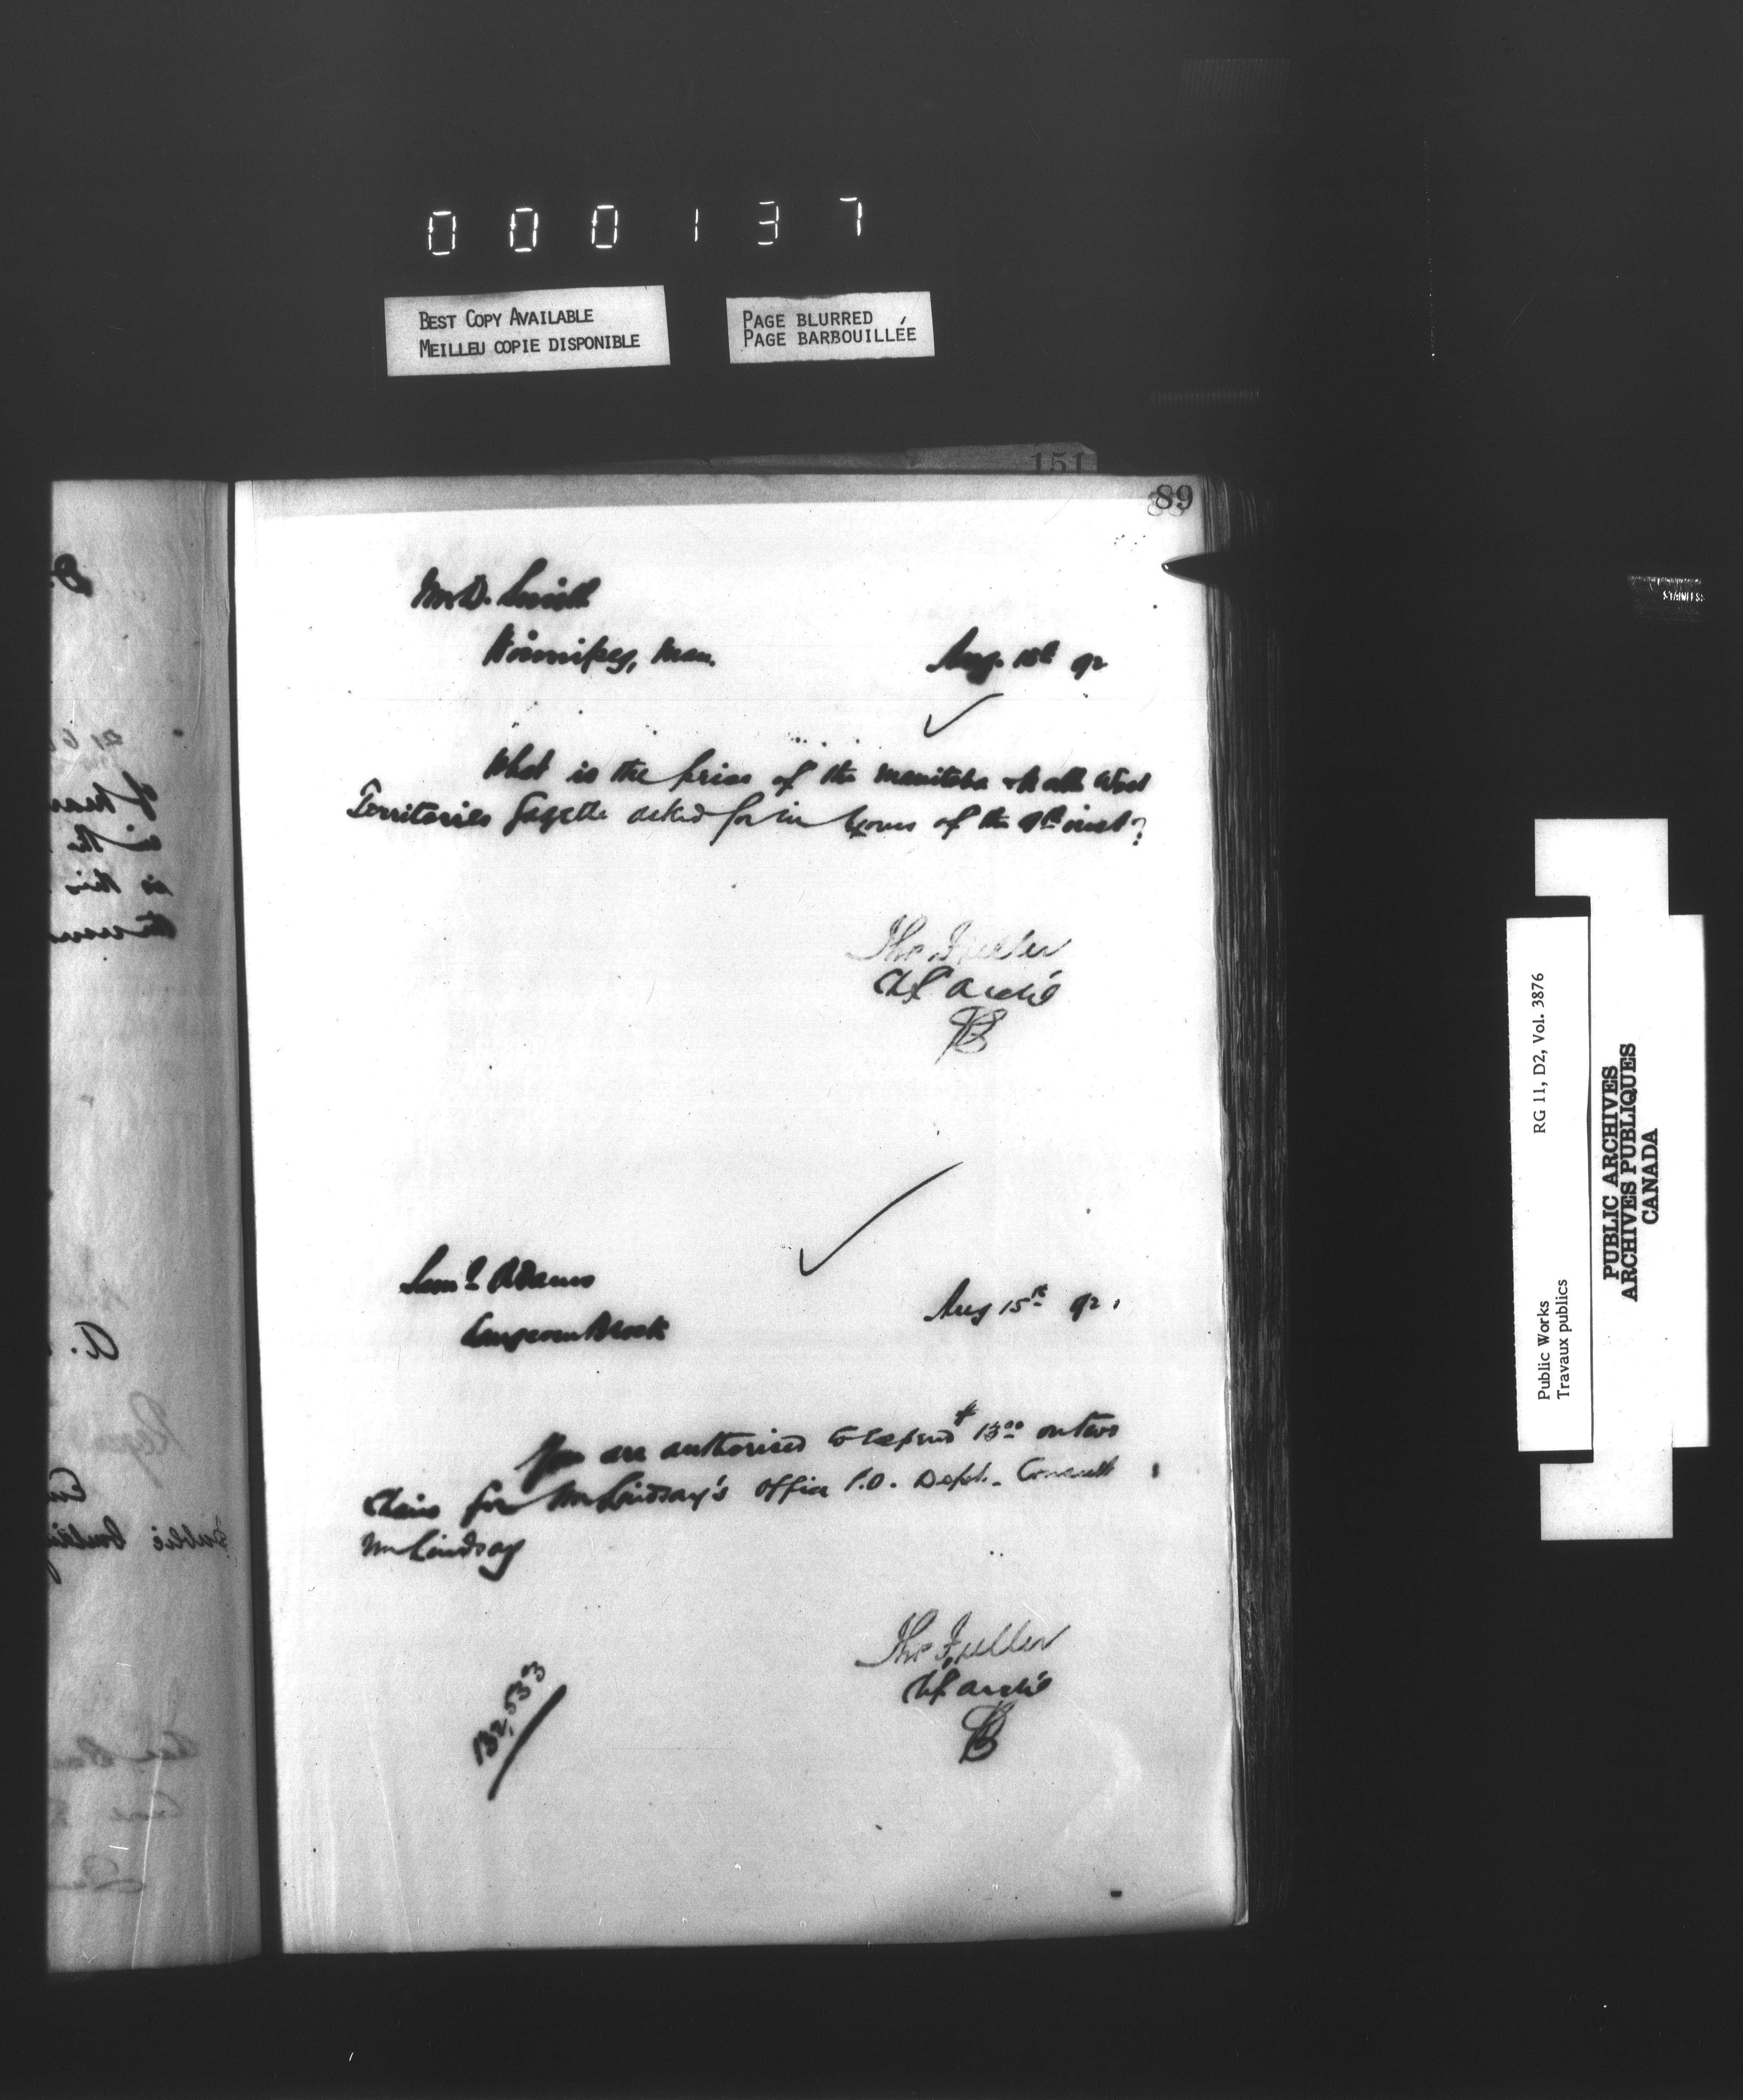 000137
BEST COPY AVAILABLE
MEILLEU COPIE DISPONIBLE
PAGE BLURRED
PAGE BARBOUILLÉE
151
89
Mr D. Smith
Winnipeg, Man.
Aug. 15th 92
What is the price of the Manitoba & North West
Territories Gazette asked for in yours of the 9th inst?
Tho. Fuller
Ch Archt
Saml Adams
Langevin Block
Aug 15th 92.
You are authorised to expend $13.00 on two
Chairs for Mr Lindsay's Office P.O. Dept. Consult
Mr Lindsay
Tho. Fuller
Ch Archt
132,533
RG 11, D2, Vol. 3876
Public Works
Travaux publics
PUBLIC ARCHIVES
ARCHIVES PUBLIQUES
CANADA